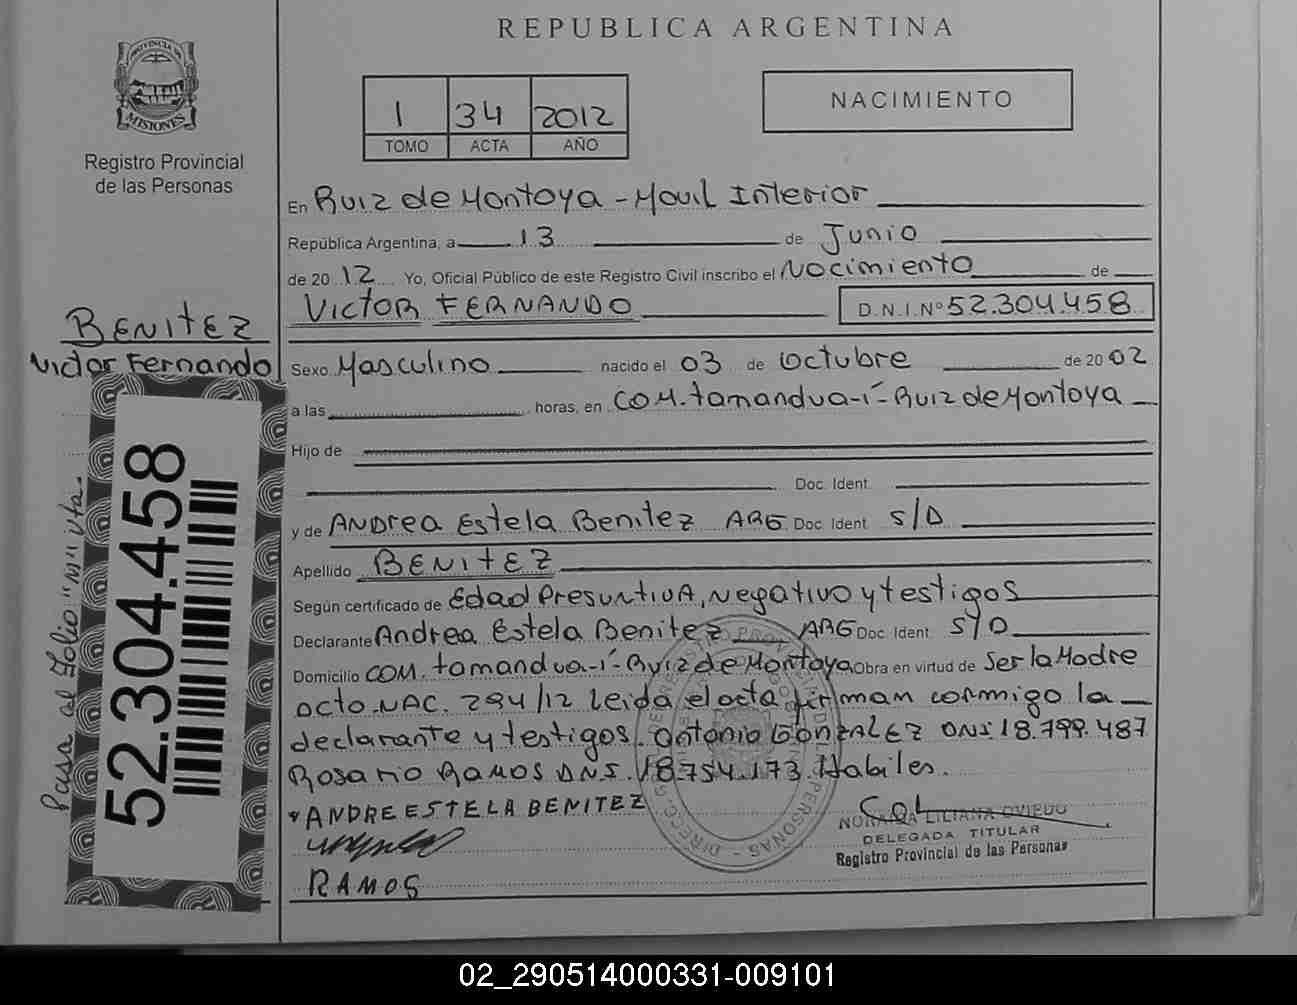 REPUBLICA ARGENTINA
PROVINCIA DE
MISIONES
Registro Provincial
de las Personas
1 34 2012
TOMO ACTA AÑO
NACIMIENTO
En Ruiz de Montoya - Movil Interior
República Argentina, a 13 de Junio
de 20 12 Yo, Oficial Público de este Registro Civil inscribo el Nacimiento de
VICTOR FERNANDO D.N.I.Nº 52.304.458
BENITEZ
Victor Fernando
Sexo Masculino nacido el 03 de Octubre de 20 02
a las horas, en COM. tamandua-í - Ruiz de Montoya
Hijo de
Doc. Ident.
y de ANDREA Estela Benitez ARG Doc. Ident. S/D
Apellido BENITEZ
Según certificado de Edad Presuntiva, Negativo y testigos
Declarante Andrea Estela Benitez ARG Doc. Ident. S/D
Domicilio COM. tamandua-í - Ruiz de Montoya Obra en virtud de Ser la Madre
acto. NAC. 294/12 Leida el acta firman conmigo la
declarante y testigos. Antonio GONZALEZ DNI 18.799.487
Rosario Ramos DNI. 18.754.173. Habiles.
ANDREESTELA BENITEZ
RAMOS
LILIANA OVIEDO
DELEGADA TITULAR
Registro Provincial de las Personas
Pasa al Folio "N1" vta.
52.304.458
02_290514000331-009101